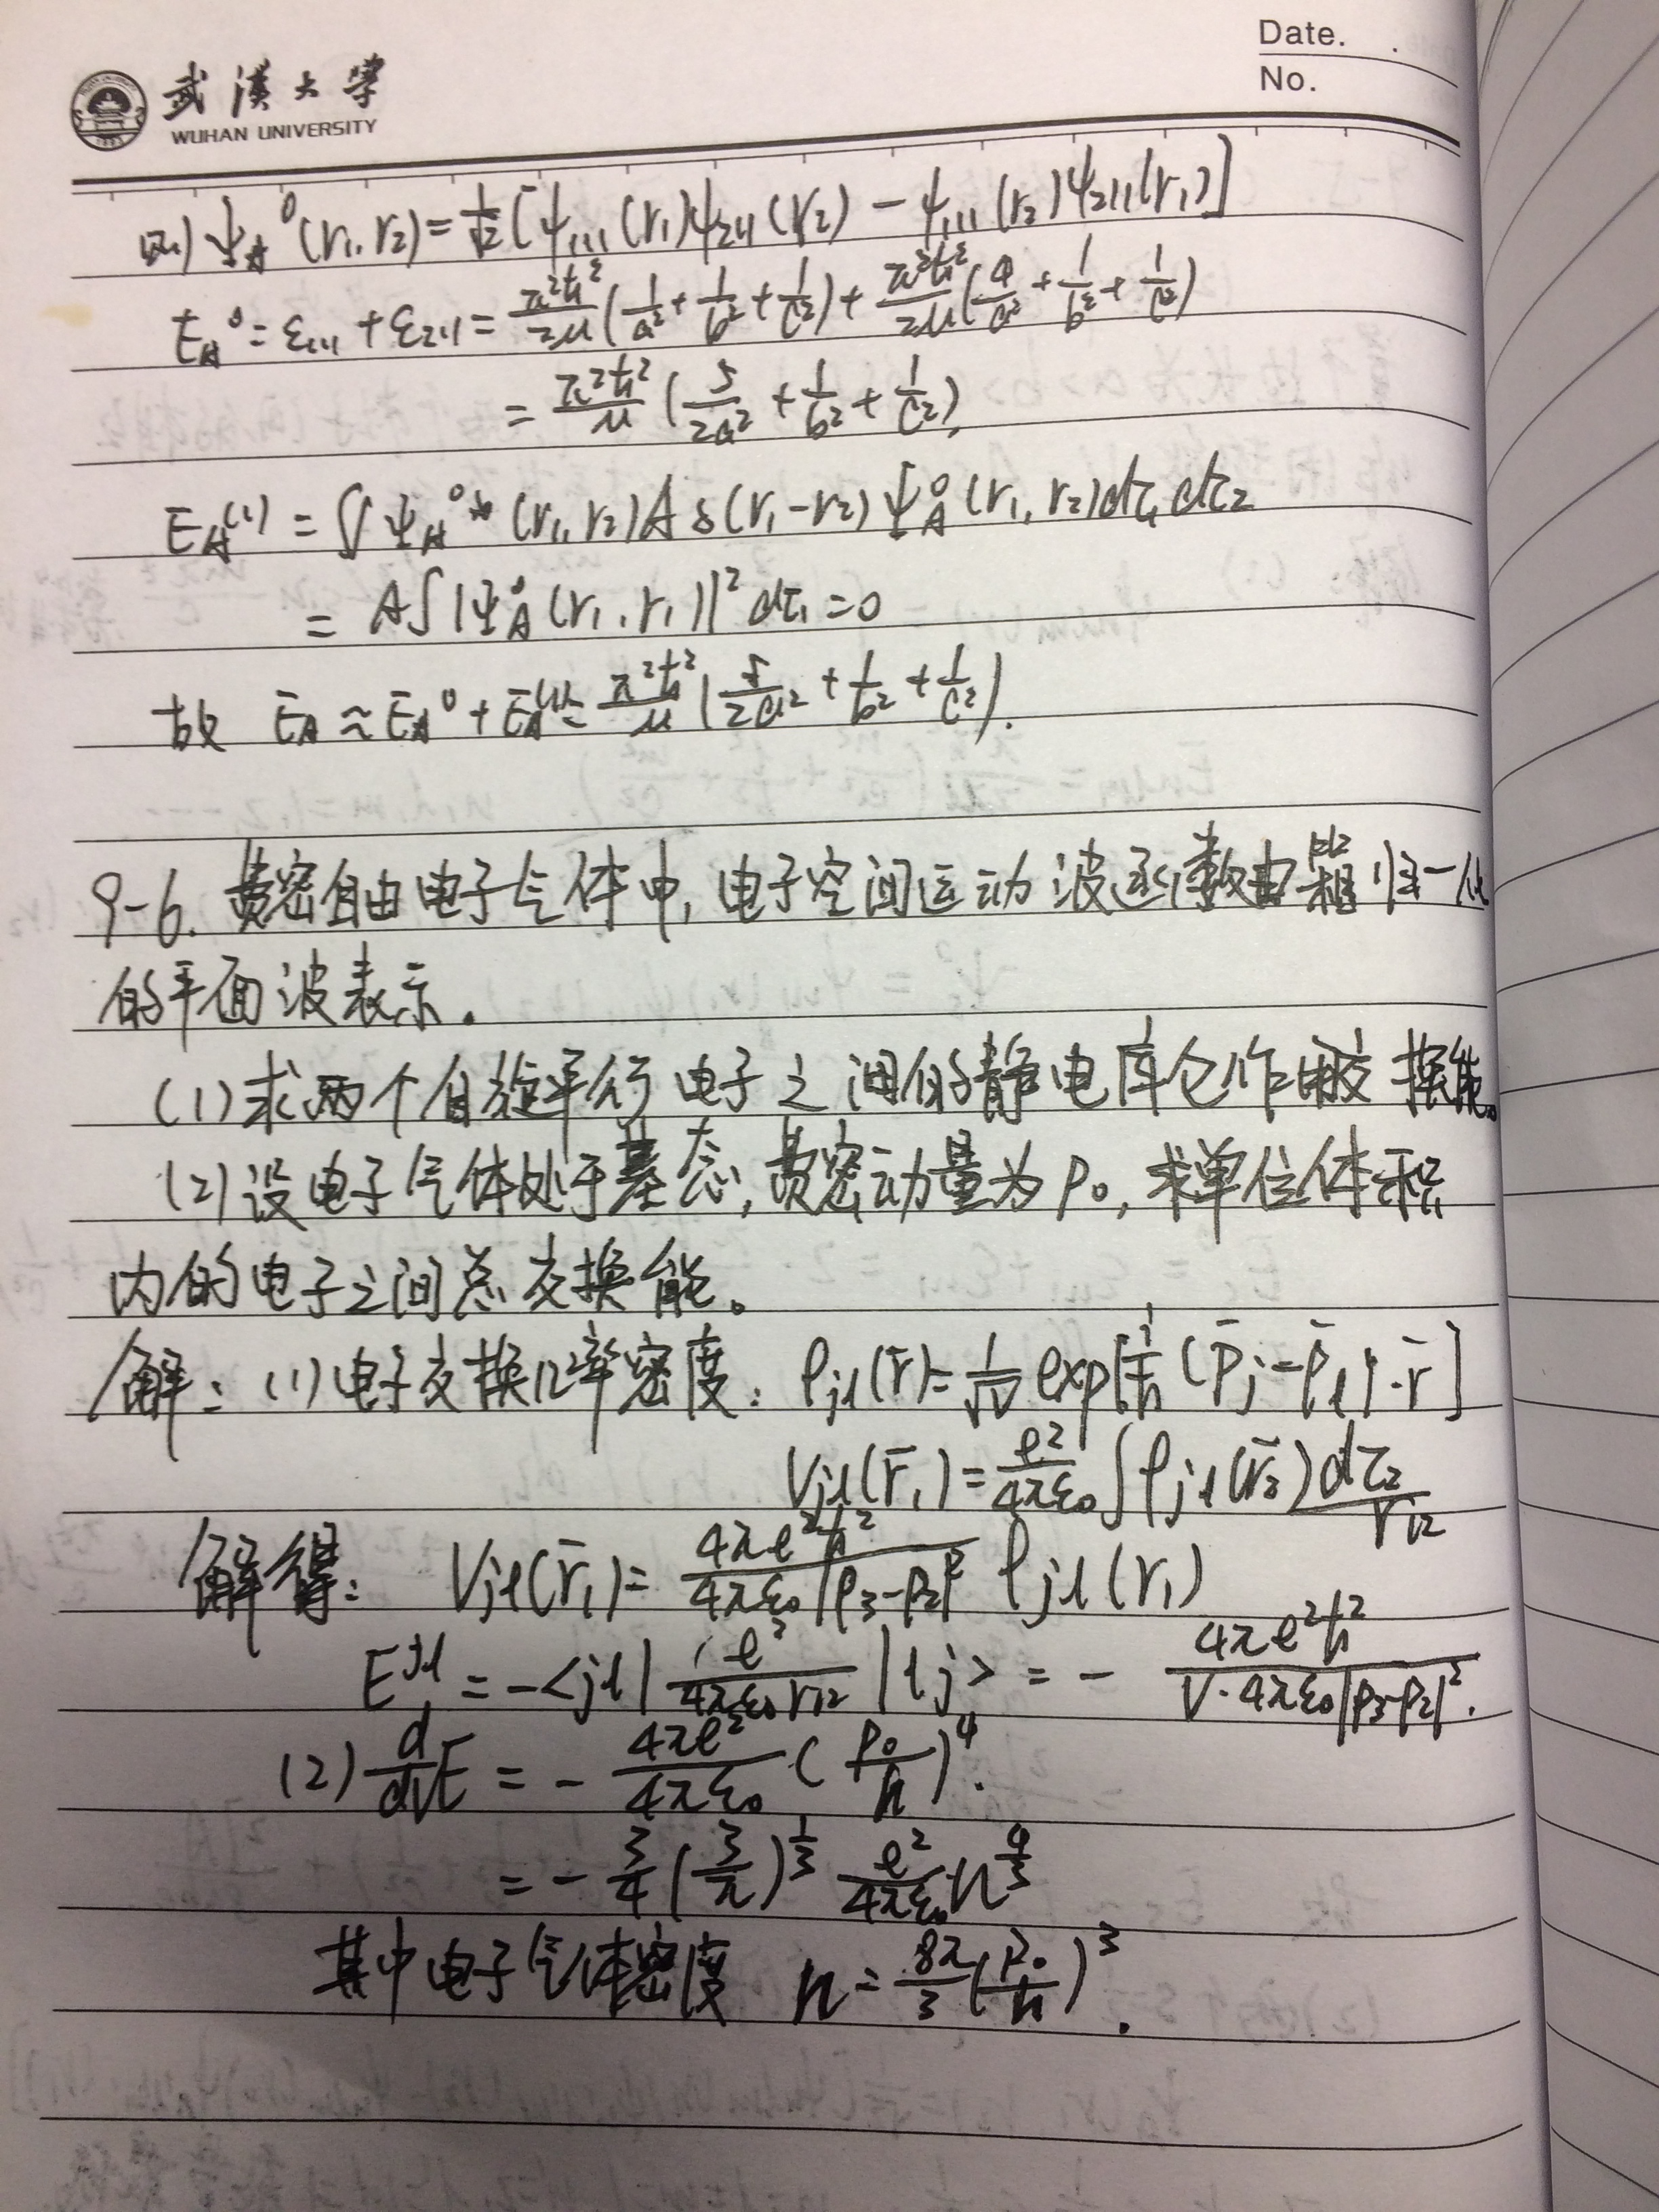 Date.
No.
武汉大学
WUHAN UNIVERSITY
则) ψ_A⁰(r₁,r₂)=1/√2[ψ₁₁₁(r₁)ψ₂₁₁(r₂)-ψ₁₁₁(r₂)ψ₂₁₁(r₁)]
E_A⁰=ε₁₁₁+ε₂₁₁=π²ħ²/2μ(1/a²+1/b²+1/c²)+π²ħ²/2μ(4/a²+1/b²+1/c²)
=π²ħ²/μ(5/2a²+1/b²+1/c²),
E_A⁽¹⁾=∬ψ_A⁰*(r₁,r₂)Aδ(r₁-r₂)ψ_A⁰(r₁,r₂)dτ₁dτ₂
=A∫|ψ_A⁰(r₁,r₁)|²dτ₁=0
故 E_A≈E_A⁰+E_A⁽¹⁾=π²ħ²/μ(5/2a²+1/b²+1/c²).
9-6. 费密自由电子气体中,电子空间运动波函数由箱归一化
的平面波表示.
(1)求两个自旋平行电子之间的静电库仑作用交换能。
(2)设电子气体处于基态,费密动量为p₀,求单位体积
内的电子之间总交换能。
解:(1)电子交换几率密度:ρjl(r̄)=1/√V exp[i/ħ(p̄j-p̄l)·r̄]
Vjl(r̄₁)=e²/4πε₀∫ρjl(r̄₂)dτ₂/r₁₂
解得: Vjl(r̄₁)=4πe²ħ²/4πε₀|p₃-p₂|² ρjl(r₁)
E^jl=-<jl|e²/4πε₀r₁₂|lj>=-4πe²ħ²/V·4πε₀|p₃-p₂|².
(2) d/dV E=-4πe²/4πε₀(p₀/h)⁴.
=-3/4(3/π)^1/3 e²/4πε₀ n^4/3
其中电子气体密度 n=8π/3(p₀/h)³.